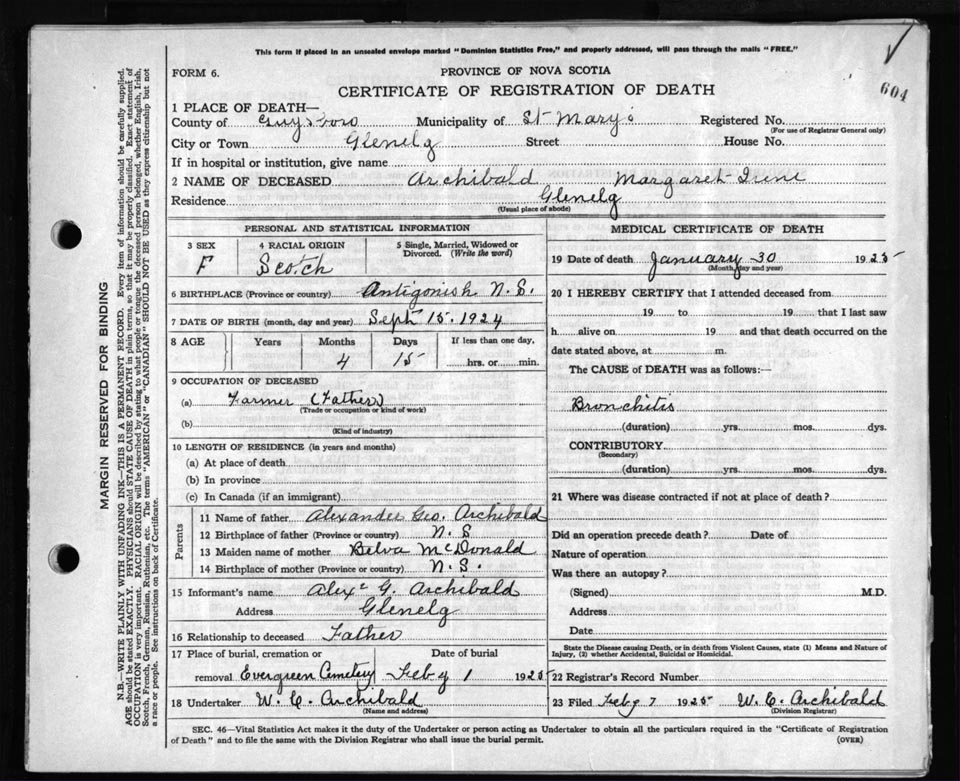 This form if placed in an unsealed envelope marked "Dominion Statistics Free," and properly addressed, will pass through the mails "FREE."
604
FORM 6.
PROVINCE OF NOVA SCOTIA
CERTIFICATE OF REGISTRATION OF DEATH
1 PLACE OF DEATH—
County of Guysboro Municipality of St Mary's Registered No.
(For use of Registrar General only)
City or Town Glenelg Street House No.
If in hospital or institution, give name
2 NAME OF DECEASED Archibald Margaret Irene
Residence Glenelg
(Usual place of abode)
PERSONAL AND STATISTICAL INFORMATION
3 SEX 4 RACIAL ORIGIN 5 Single, Married, Widowed or Divorced. (Write the word)
F Scotch
6 BIRTHPLACE (Province or country) Antigonish N.S.
7 DATE OF BIRTH (month, day and year) Sept 15. 1924
8 AGE Years Months Days If less than one day,
4 15 hrs. or min.
9 OCCUPATION OF DECEASED
(a) Farmer (Father)
(Trade or occupation or kind of work)
(b)
(Kind of industry)
10 LENGTH OF RESIDENCE (in years and months)
(a) At place of death
(b) In province
(c) In Canada (if an immigrant)
Parents
11 Name of father Alexander Geo. Archibald
12 Birthplace of father (Province or country) N. S
13 Maiden name of mother Belva McDonald
14 Birthplace of mother (Province or country) N. S.
15 Informant's name Alexr G. Archibald
Address Glenelg
16 Relationship to deceased Father
17 Place of burial, cremation or Date of burial
removal Evergreen Cemetery Feby 1 1925
18 Undertaker W. C. Archibald
(Name and address)
MEDICAL CERTIFICATE OF DEATH
19 Date of death January 30 1925
(Month, day and year)
20 I HEREBY CERTIFY that I attended deceased from
19 to 19 that I last saw
h alive on 19 and that death occurred on the
date stated above, at m.
The CAUSE of DEATH was as follows:—
Bronchitis
(duration) yrs. mos. dys.
CONTRIBUTORY
(Secondary)
(duration) yrs. mos. dys.
21 Where was disease contracted if not at place of death?
Did an operation precede death? Date of
Nature of operation
Was there an autopsy?
(Signed) M.D.
Address
Date
State the Disease causing Death, or in death from Violent Causes, state (1) Means and Nature of
Injury, (2) whether Accidental, Suicidal or Homicidal.
22 Registrar's Record Number
23 Filed Feby 7 1925 W. C. Archibald
(Division Registrar)
SEC. 46—Vital Statistics Act makes it the duty of the Undertaker or person acting as Undertaker to obtain all the particulars required in the "Certificate of Registration
of Death" and to file the same with the Division Registrar who shall issue the burial permit. (OVER)
MARGIN RESERVED FOR BINDING
N.B.—WRITE PLAINLY WITH UNFADING INK—THIS IS A PERMANENT RECORD. Every item of information should be carefully supplied.
AGE should be stated EXACTLY. PHYSICIANS should STATE CAUSE OF DEATH in plain terms, so that it may be properly classified. Exact statement of
OCCUPATION is very important. RACIAL ORIGIN will be described by stating to what people or tongue the deceased person belonged, whether English, Irish,
Scotch, French, German, Russian, Ruthenian, etc. The terms "AMERICAN" or "CANADIAN" SHOULD NOT BE USED as they express citizenship but not
a race or people. See instructions on back of Certificate.